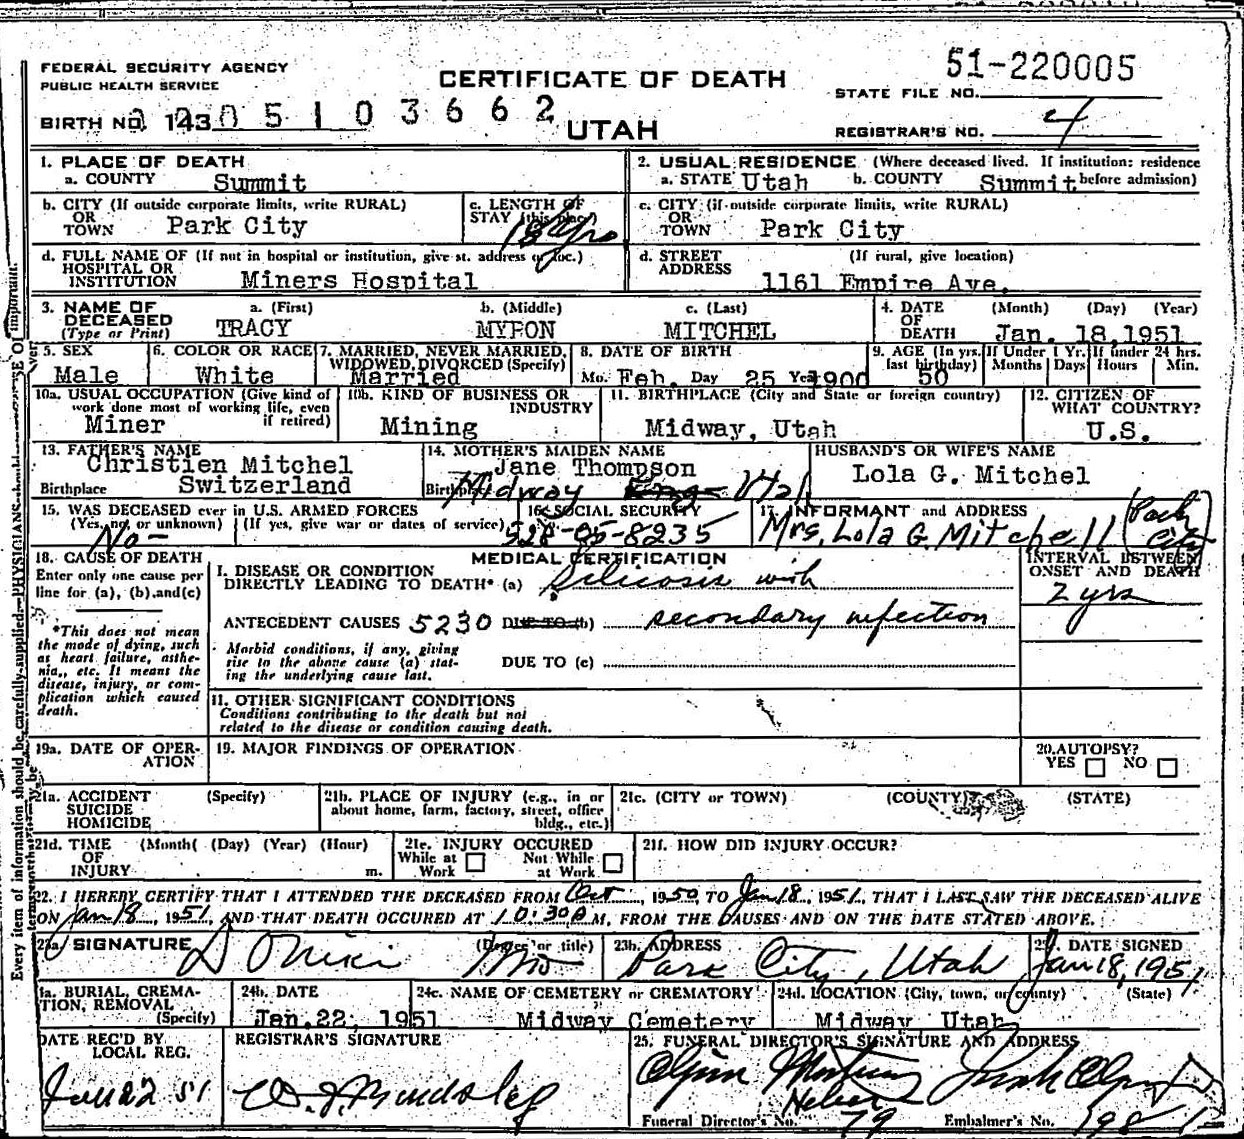 FEDERAL SECURITY AGENCY
PUBLIC HEALTH SERVICE
CERTIFICATE OF DEATH
51-220005
STATE FILE NO.
BIRTH NO. 143
05103662
UTAH
REGISTRAR'S NO. 4
1. PLACE OF DEATH
a. COUNTY Summit
2. USUAL RESIDENCE (Where deceased lived. If institution: residence before admission)
a. STATE Utah b. COUNTY Summit
b. CITY (If outside corporate limits, write RURAL)
OR
TOWN Park City
c. LENGTH OF
STAY (this place)
18 yrs
c. CITY (if outside corporate limits, write RURAL)
OR
TOWN Park City
d. FULL NAME OF (If not in hospital or institution, give st. address or loc.)
HOSPITAL OR
INSTITUTION Miners Hospital
d. STREET (If rural, give location)
ADDRESS 1161 Empire Ave.
3. NAME OF DECEASED (Type or Print)
a. (First) b. (Middle) c. (Last)
TRACY MYRON MITCHEL
4. DATE OF DEATH (Month) (Day) (Year)
Jan. 18,1951
5. SEX
Male
6. COLOR OR RACE
White
7. MARRIED, NEVER MARRIED,
WIDOWED, DIVORCED (Specify)
Married
8. DATE OF BIRTH
Mo. Feb. Day 25 Year 1900
9. AGE (In yrs. last birthday)
50
If Under 1 Yr. If under 24 hrs.
Months Days Hours Min.
10a. USUAL OCCUPATION (Give kind of
work done most of working life, even
if retired)
Miner
10b. KIND OF BUSINESS OR
INDUSTRY
Mining
11. BIRTHPLACE (City and State or foreign country)
Midway, Utah
12. CITIZEN OF
WHAT COUNTRY?
U.S.
13. FATHER'S NAME
Christien Mitchel
Birthplace Switzerland
14. MOTHER'S MAIDEN NAME
Jane Thompson
Birthplace Midway Utah
HUSBAND'S OR WIFE'S NAME
Lola G. Mitchel
15. WAS DECEASED ever in U.S. ARMED FORCES
(Yes, no, or unknown) (If yes, give war or dates of service)
No -
16. SOCIAL SECURITY
528-05-8235
17. INFORMANT and ADDRESS
Mrs. Lola G. Mitchell (Park City)
18. CAUSE OF DEATH
Enter only one cause per
line for (a), (b), and (c)
*This does not mean
the mode of dying, such
as heart failure, asthe-
nia, etc. It means the
disease, injury, or com-
plication which caused
death.
MEDICAL CERTIFICATION
INTERVAL BETWEEN
ONSET AND DEATH
I. DISEASE OR CONDITION
DIRECTLY LEADING TO DEATH* (a) Silicosis with
2 yrs
ANTECEDENT CAUSES 5230 DUE TO (b) secondary infection
Morbid conditions, if any, giving
rise to the above cause (a) stat-
ing the underlying cause last.
DUE TO (c)
II. OTHER SIGNIFICANT CONDITIONS
Conditions contributing to the death but not
related to the disease or condition causing death.
19a. DATE OF OPER-
ATION
19. MAJOR FINDINGS OF OPERATION
20. AUTOPSY?
YES NO
21a. ACCIDENT (Specify)
SUICIDE
HOMICIDE
21b. PLACE OF INJURY (e.g., in or
about home, farm, factory, street, office
bldg., etc.)
21c. (CITY or TOWN) (COUNTY) (STATE)
21d. TIME (Month( (Day) (Year) (Hour)
OF
INJURY m.
21e. INJURY OCCURED
While at Work Not While at Work
21f. HOW DID INJURY OCCUR?
22. I HEREBY CERTIFY THAT I ATTENDED THE DECEASED FROM Oct, 1950 TO Jan 18, 1951, THAT I LAST SAW THE DECEASED ALIVE
ON Jan 18, 1951, AND THAT DEATH OCCURED AT 10:30 A M, FROM THE CAUSES AND ON THE DATE STATED ABOVE.
23a. SIGNATURE (Degree or title)
MD
23b. ADDRESS
Park City, Utah
23c. DATE SIGNED
Jan 18, 1951
BURIAL, CREMA-
TION, REMOVAL
(Specify)
24b. DATE
Jan. 22, 1951
24c. NAME OF CEMETERY or CREMATORY
Midway Cemetery
24d. LOCATION (City, town, or county) (State)
Midway Utah
DATE REC'D BY
LOCAL REG.
Jan 22 51
REGISTRAR'S SIGNATURE
25. FUNERAL DIRECTOR'S SIGNATURE AND ADDRESS
Olpin Mortuary
Heber
Funeral Director's No. 79 Embalmer's No. 198
Every item of information should be carefully supplied—PHYSICIANS should